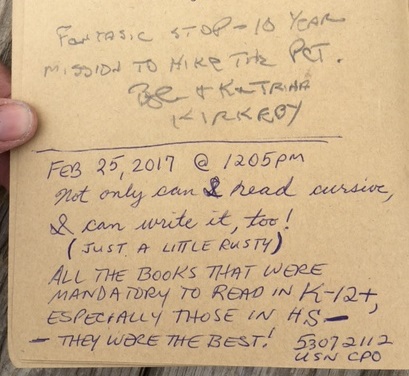 FANTASIC STOP - 10 YEAR
MISSION TO HIKE THE PCT.
+ KATRINA
KIRKEBY
FEB 25, 2017 @ 1205PM
Not only can I read cursive,
I can write it, too!
(JUST A LITTLE RUSTY)
ALL THE BOOKS THAT WERE
MANDATORY TO READ IN K-12+,
ESPECIALLY THOSE IN HS—
— THEY WERE THE BEST! 53072112
USN CPO